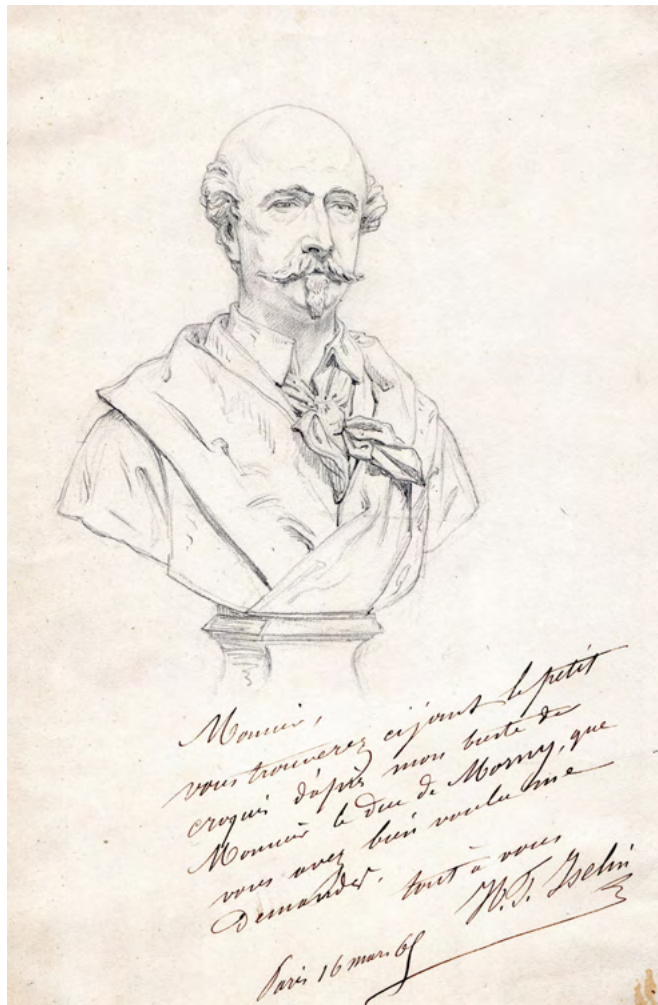 Monsieur,
vous trouverez ci joint le petit
croquis d'après mon buste de
Monsieur le duc de Morny, que
vous avez bien voulu me
demander.
tout à vous
H.F. Iselin
Paris 16 mars 65